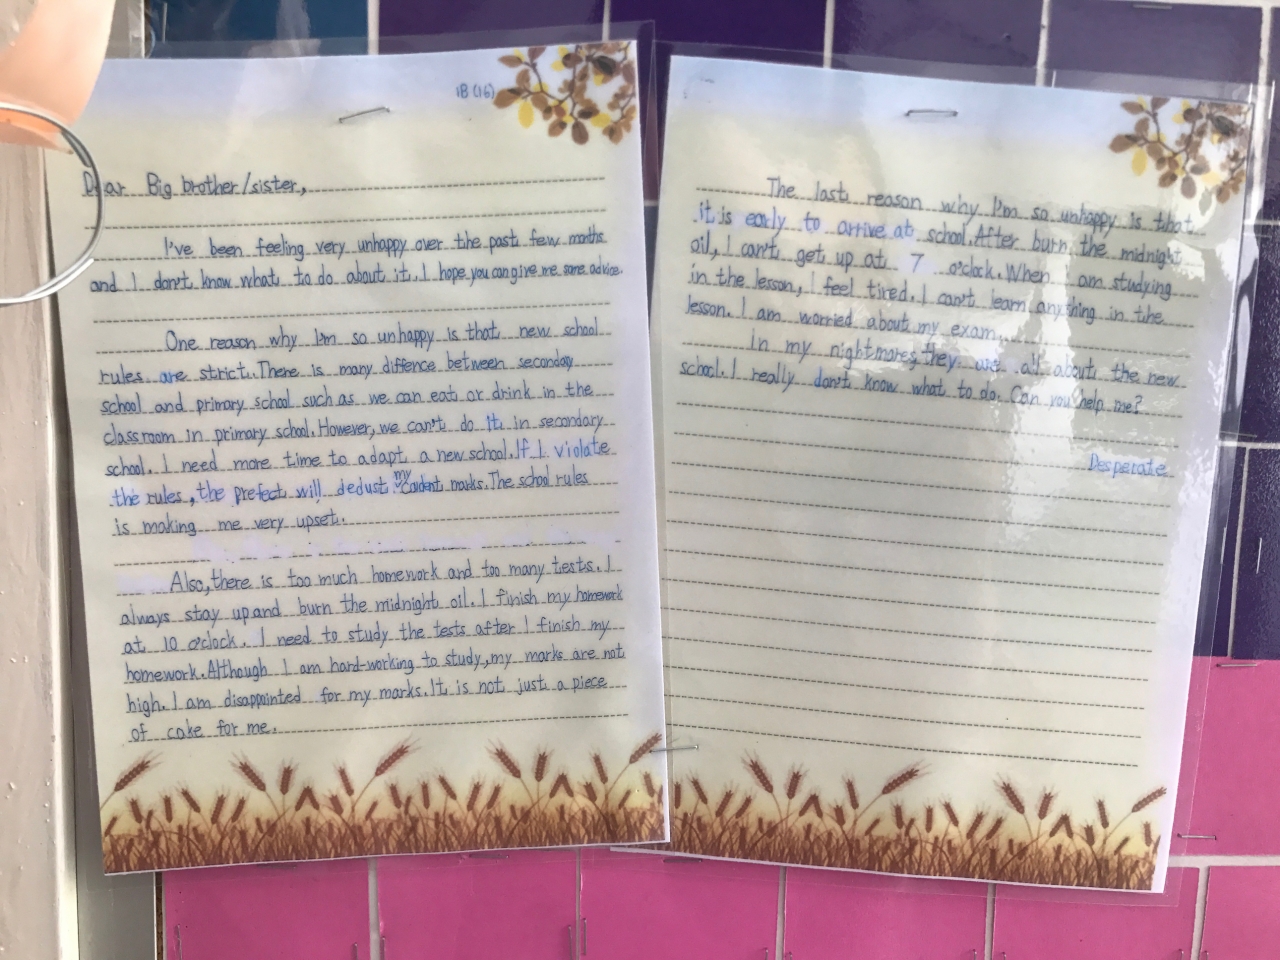 1B (16)
Dear Big brother/sister,
I've been feeling very unhappy over the past few months
and I don't know what to do about it. I hope you can give me some advice.
One reason why I'm so unhappy is that new school
rules are strict. There is many diffence between seconday
school and primary school such as we can eat or drink in the
classroom in primary school. However, we can't do it in secondary
school. I need more time to adapt a new school. If I violate
the rules, the prefect will dedust my marks. The school rules
is making me very upset.
Also, there is too much homework and too many tests. I
always stay up and burn the midnight oil. I finish my homework
at 10 o'clock. I need to study the tests after I finish my
homework. Although I am hard-working to study, my marks are not
high. I am disappointed for my marks. It is not just a piece
of cake for me.
The last reason why I'm so unhappy is that
it is early to arrive at school. After burn the midnight
oil, I can't get up at 7 o'clock. When I am studying
in the lesson, I feel tired. I can't learn anything in the
lesson. I am worried about my exam.
In my nightmares, they are all about the new
school. I really don't know what to do. Can you help me?
Desperate